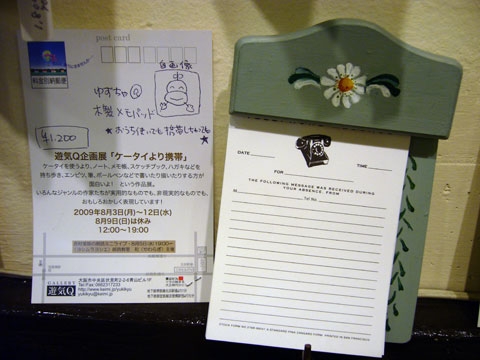 post card
料金別納郵便
自画像
ゆずちゃ
木製メモパッド
★おうち使いでも携帯しちゃいても★
¥1,200
遊気Q企画展「ケータイより携帯」
ケータイを使うより、ノート、メモ帳、スケッチブック、ハガキなどを
持ち歩き、エンピツ、筆、ボールペンなどで書いたり描いたりする方が
面白いよ! という作品展。
いろんなジャンルの作家たちが実用的なものでも、非現実的なものでも、
おもしろおかしく表現しています!
2009年8月3日(月)〜12日(水)
8月9日(日)は休み
12:00〜19:00
GALLERY
遊気Q
大阪市中央区伏見町2-2-6青山ビル1F
Tel/Fax:0662317233
DATE
TIME
FOR
THE FOLLOWING MESSAGE WAS RECEIVED DURING
YOUR ABSENCE, FROM
M
Tel No.